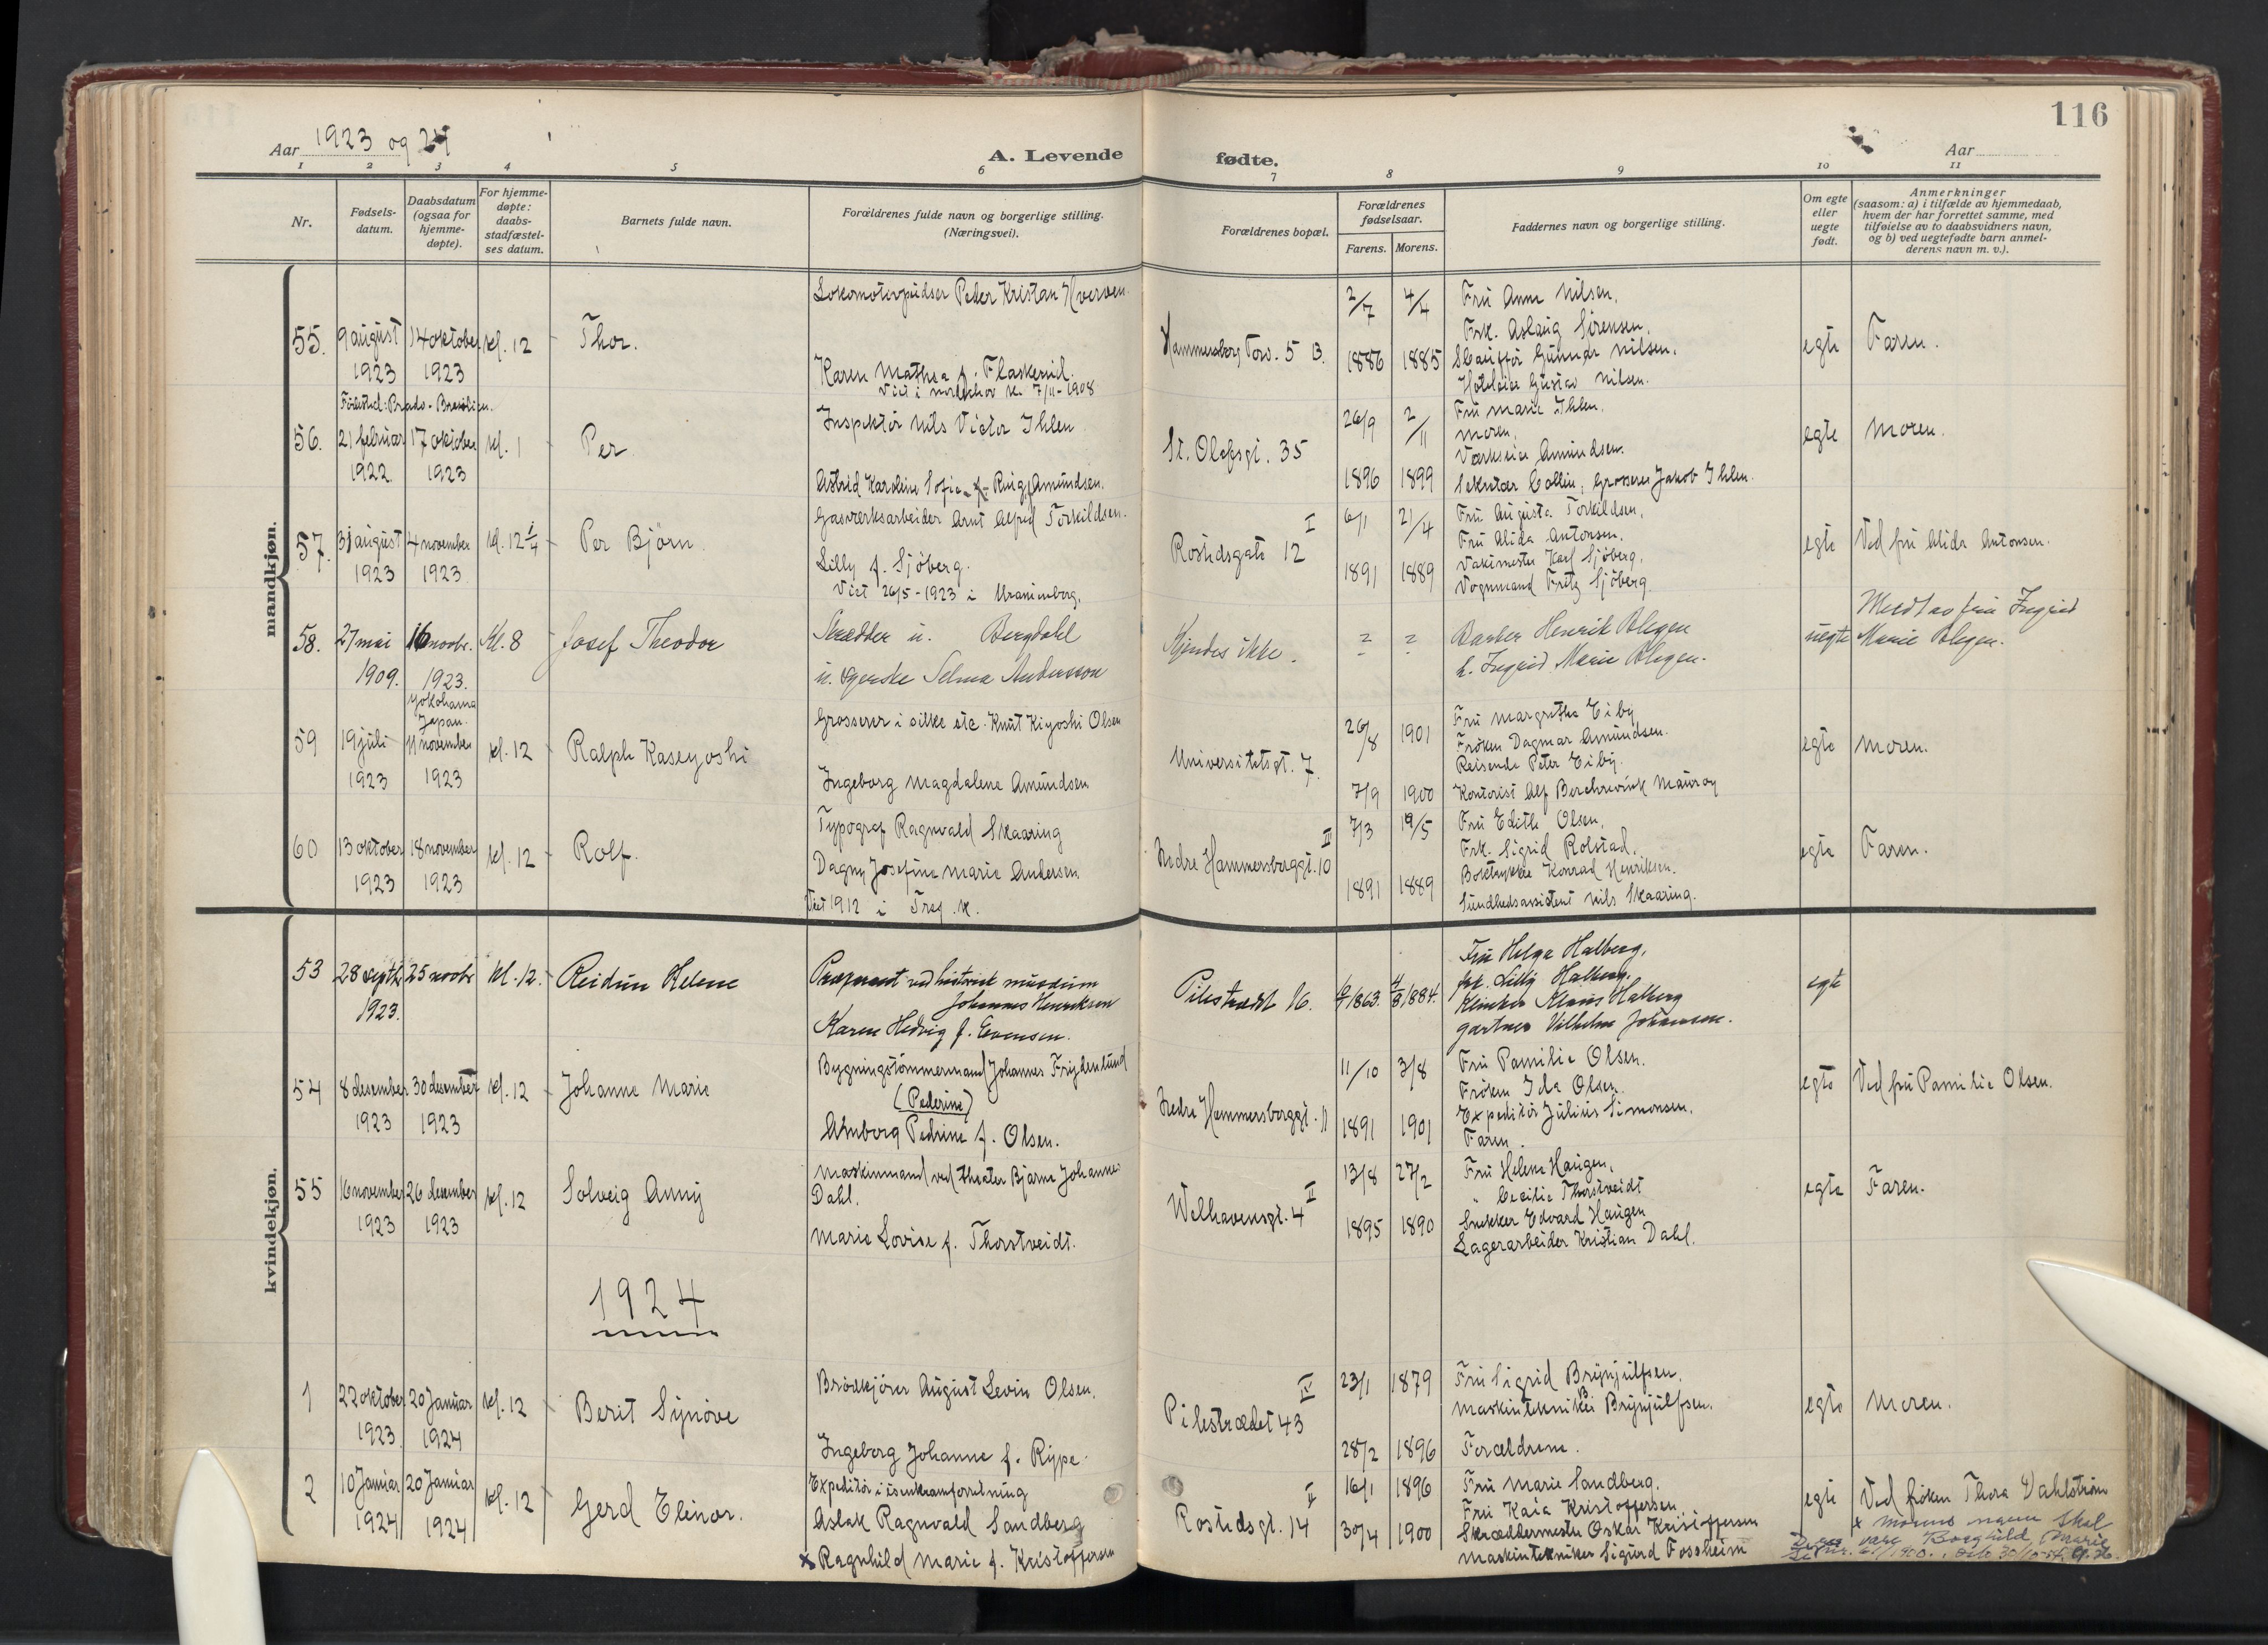 116
Aar 1923 og 24
A. Levende fødte.
Aar
1 2 3 4 5 6 7 8 9 10 11
Nr.
Fødsels-
datum.
Daabsdatum
(ogsaa for
hjemme-
døpte).
For hjemme-
døpte:
daabs-
stadfæstel-
ses datum.
Barnets fulde navn.
Forældrenes fulde navn og borgerlige stilling.
(Næringsvei).
Forældrenes bopæl.
Forældrenes
fødselsaar.
Farens. Morens.
Faddernes navn og borgerlige stilling.
Om egte
eller
uegte
født.
Anmerkninger
(saasom: a) i tilfælde av hjemmedaab,
hvem der har forrettet samme, med
tilføielse av to daabsvidners navn,
og b) ved uegtefødte barn anmel-
derens navn m. v.).
mandkjøn.
55. 9 august 1923
14 oktober 1923
kl. 12
Thor.
Lokomotivpudser Peder Kristian Hverven
Karen Mathea f. Flaskerud.
Viet i k. 7/11-1908
Hammersborg Torv. 5 B.
2/7 1886
4/4 1885
Fru Anna Nilsen.
Frk. Aslaug Sørensen.
Chauffør Gunnar Nilsen.
Hoteleier Gustav Nilsen.
egte
Faren.
Fødested: Brado - Brasilien.
56. 21 februar 1922
17 oktober 1923
kl. 1
Per
Inspektør Nils Victor Ihlen
Astrid Karoline Sofie f. Ring Amundsen.
St. Olafsgt. 35
26/9 1896
2/11 1899
Fru Marie Ihlen.
Moren.
Værkseier Amundsen.
Sekretær Collin, Grosserer Jakob Ihlen.
egte
Moren.
57. 31 august 1923
4 november 1923
kl. 12 1/4
Per Bjørn
Gasverksarbeider Arnt Alfred Torkildsen.
Lilly f. Sjöberg.
Viet 26/5-1923 i Uranienborg.
Rostedsgate 12 I
6/1 1891
21/4 1889
Fru Augusta Torkildsen,
Fru Alida Antonsen.
Vaktmester Karl Sjöberg.
Vognmand Fritz Sjöberg
egte
Ved fru Alida Antonsen.
58. 27 mai 1909.
16 novbr. 1923.
Kl. 8
Josef Theodor
Skrædder u. Bergdahl
u. syerske Selma Andersson
Kjendes ikke.
? ?
Barber Henrik Blegen
h. Ingrid Marie Blegen.
uegte
Meldt av fru Ingrid
Marie Blegen.
Yokohama
Japan.
59 19 juli 1923
11 november 1923
kl. 12
Ralph Kaseyoshi
Grosserer i silke etc. Knut Kiyoshi Olsen
Ingeborg Magdalene Amundsen
Universitetsgt. 7.
26/8 1901
7/9 1900
Fru Margrethe Eiby
Frøken Dagmar Amundsen.
Reisende Peter Eiby.
Kontorist Alf
egte
Moren.
60 13 oktober 1923
18 november 1923
kl. 12
Rolf.
Typograf Ragnvald Skaaring
Dagny Josefine Marie Andersen
Viet 1912 i Tref. k.
Nedre Hammersborggt. 10 II
7/3 1891
19/5 1889
Fru Edith Olsen,
Frk. Sigrid Rolstad.
Boktrykker Konrad Henriksen.
Sundhedsassistent Nils Skaaring.
egte
Faren.
kvindekjøn.
53 28 septbr 1923.
25 novbr
kl. 12.
Reidun Helene
Preparant ved historisk museum
Johannes Henriksen
Karen Hedvig f. Evensen.
Pilestrædt 16.
1863.
1884.
Fru Helga Halberg,
frk. Lilly Halberg.
Klaus Halberg
gartner Vilhelm Johansen.
egte
54 8 desember 1923
30 desember 1923
kl. 12
Johanne Marie
Bygningstømmermand Johannes Frydenlund
(Pederine)
Almborg Pedrine f. Olsen.
Nedre Hammersborggt. 11
11/10 1891
3/8 1901
Fru Pamilie Olsen.
Frøken Ida Olsen.
Expeditør Julius Simonsen.
Faren.
egte
Ved fru Pamilie Olsen.
55 16 november 1923
26 desember 1923
kl. 12
Solveig Anny
Maskinmand ved theater Bjarne Johannes
Dahl.
Marie Lovise f. Thorstveidt.
Welhavensgt. 4 II
13/8 1895
27/2 1890
Fru Helene Haugen,
" Cecilie Thorstveidt
Snekker Edvard Haugen
Lagerarbeider Kristian Dahl.
egte
Faren.
1924
1 22 oktober 1923
20 Januar 1924
kl. 12
Berit Synøve
Brødkjører August Levin Olsen.
Ingeborg Johanne f. Rype.
Pilestrædet 43 IV
23/1 1879
28/2 1896
Fru Sigrid Brynjulfsen.
Maskintekniker B. Brynjulfsen.
Forældrene.
egte
Moren.
2 10 Januar 1924
20 Januar 1924
kl. 12
Gerd Elinor.
Expeditør i isenkramforretning
Aslak Ragnvald Sandberg
x Ragnhild Marie f. Kristoffersen
Rostedsgt. 14 II
16/1 1896
30/4 1900
Fru Marie Sandberg.
Fru Kaia Kristoffersen
Skræddermester Oskar Kristoffersen
Maskintekniker Sigurd Fossheim
egte
Ved frøken Thora Dahlstrøm
x Morens navn skal
være Borghild Marie